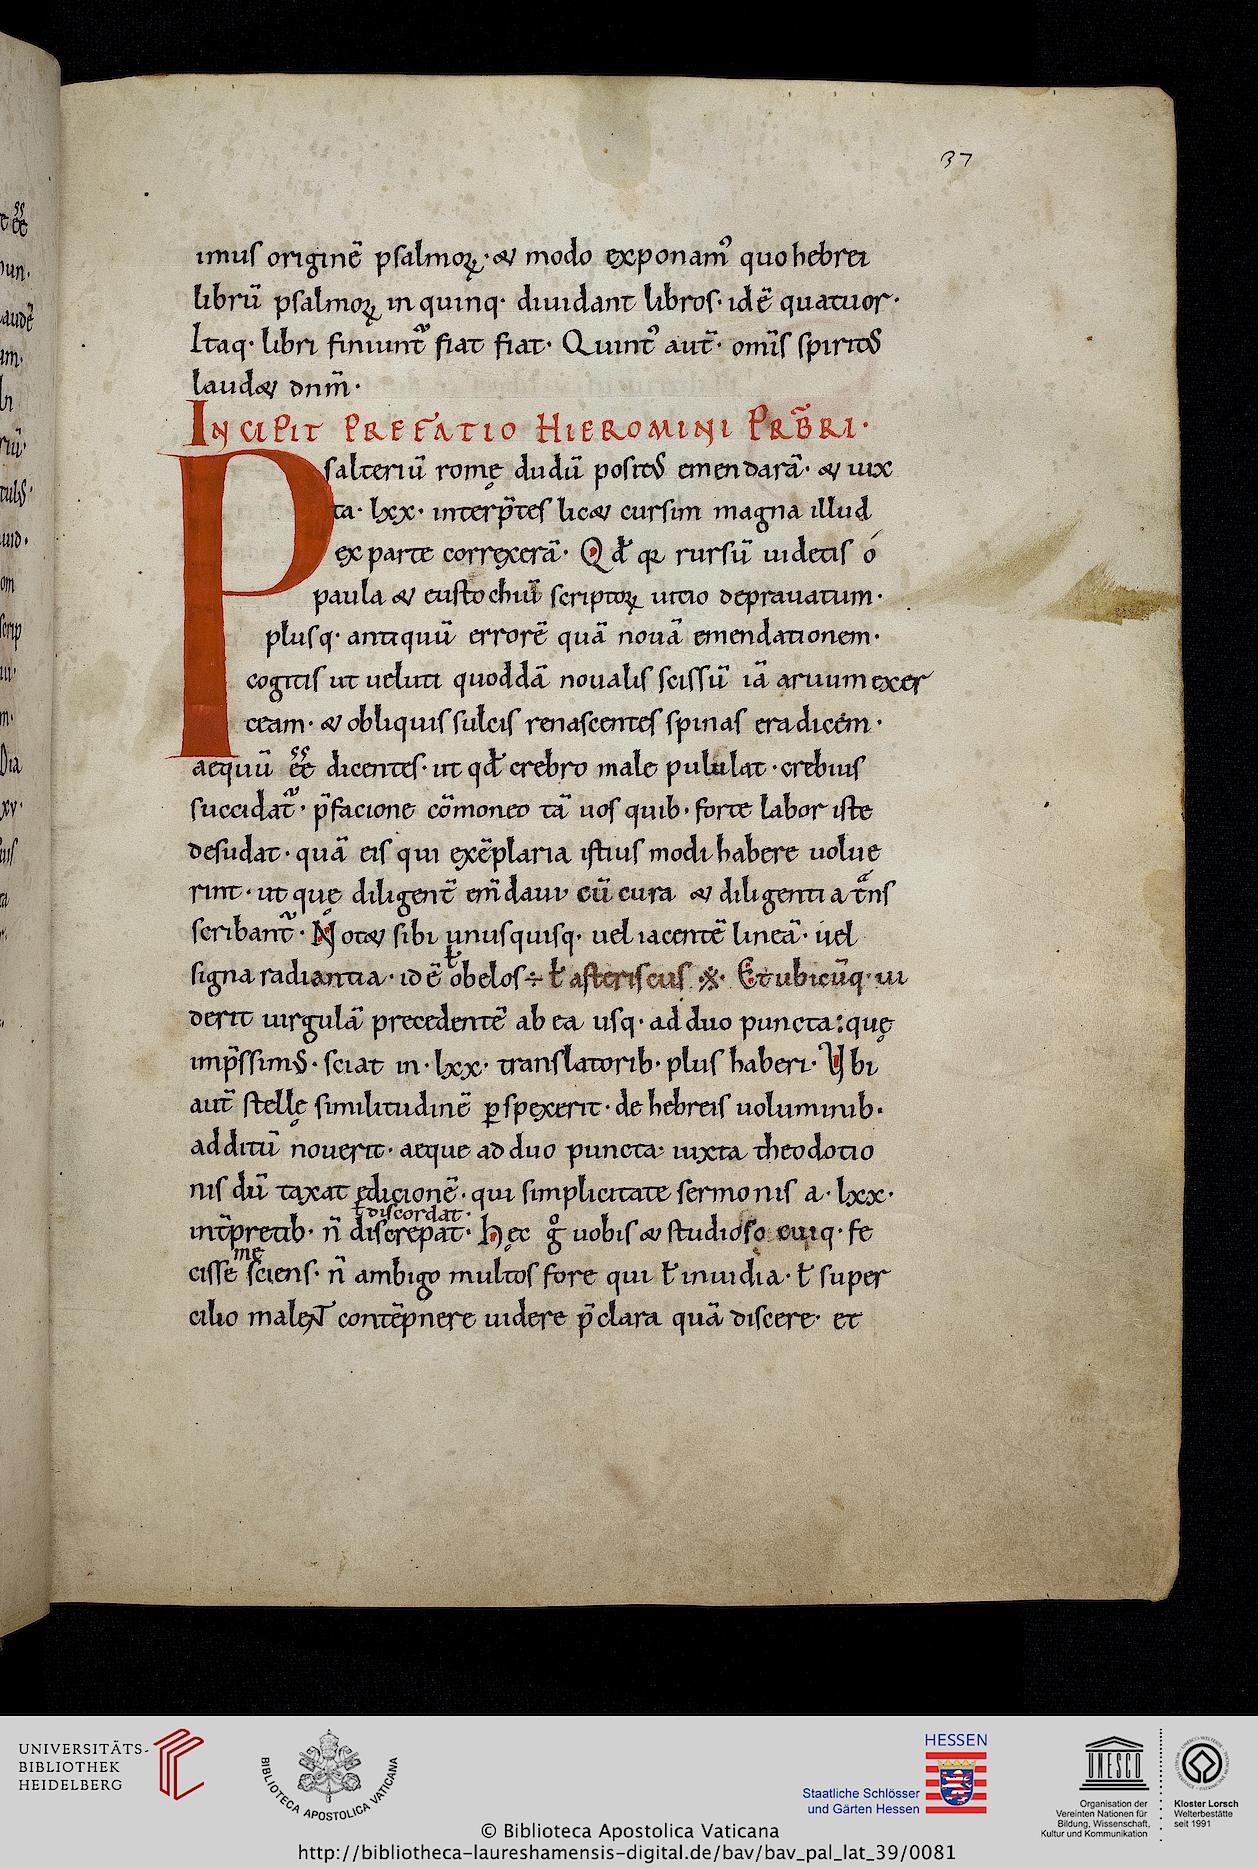 37
imus originē psalmoꝝ· & modo exponam᷒ quo hebrei
librū psalmoꝝ in quinq· diuidant libros· idē quatuor·
Itaq· libri finiunt᷑ fiat fiat· Quint᷒ aut̄· omīs spirit᷒
laud& dnm̄·
INCIPIT PREFATIO HIEROMINI PRB̄RI·
Psalteriū romę dudū posit᷒ emendarā· & iux
ta· lxx· interp̄tes lic& cursim magna illud
ex parte correxerā· Qđ qꝛ rursū uidetis ó
paula & eustochiū scriptoꝝ uitio deprauatum·
plusq· antiquū errorē quā nouā emendationem·
cogitis ut ueluti quoddā noualis scissū iā aruum exer
ceam· & obliquis sulcis renascentes spinas eradicem·
aequū ee᷒᷒ dicentes· ut qđ crebro male pululat· crebius
succidat᷑· p̄facione cōmoneo tā uos quib· forte labor iste
desudat· quā eis qui exēplaria istius modi habere uolue
rint· ut quę diligent̄ em̄daui cū cura & diligentia t̄ns
scribant᷑· Not& sibi unusquisq· uel iacentē lineā· uel
signa radiantia· id ē ƚ obelos ÷ ƚ asteriscus ※· Et ubicūq· ui
derit uirgulā precedentē ab ea usq· ad duo puncta: quę
imp̄ssim᷒· sciat in· lxx· translatorib· plus haberi· Vbi
aut̄ stellę similitudinē ꝑspexerit· de hebreis uoluminib·
additū nouerit· aeque ad duo puncta· iuxta theodotio
nis dū taxat edicionē· qui simplicitate sermonis a· lxx·
ƚ discordat·
int̄pretib· n̄ discrepat· hęc g̊ uobis & studioso cuiq· fe
me
cisse sciens· n̄ ambigo multos fore qui ƚ inuidia· ƚ super
cilio malent contēpnere uidere p̄clara quā discere· et
UNIVERSITÄTS-
BIBLIOTHEK
HEIDELBERG
BIBLIOTECA APOSTOLICA VATICANA
HESSEN
Staatliche Schlösser
und Gärten Hessen
UNESCO
Organisation der
Vereinten Nationen für
Bildung, Wissenschaft,
Kultur und Kommunikation
Kloster Lorsch
Welterbestätte
seit 1991
© Biblioteca Apostolica Vaticana
http://bibliotheca-laureshamensis-digital.de/bav/bav_pal_lat_39/0081